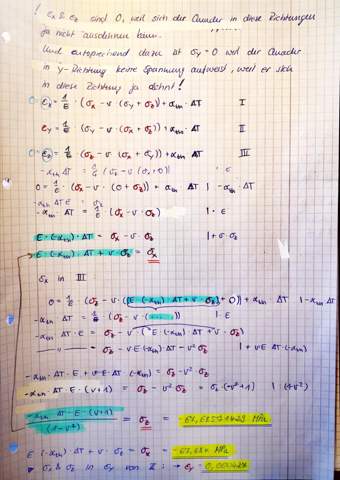 ! εx & εz sind 0, weil sich der Quader in diese Richtungen
ja nicht ausdehnen kann.
Und entsprechend dazu ist σy = 0 weil der Quader
in y-Richtung keine Spannung aufweist, weil er sich
in diese Richtung ja dehnt!
0 = εx = 1/E · (σx - ν · (σy + σz)) + αth · ΔT I
εy = 1/E · (σy - ν · (σx + σz)) + αth · ΔT II
0 = εz = 1/E · (σz - ν · (σx + σy)) + αth · ΔT III
0 = 1/E · (σx - ν · (0 + σz)) + αth · ΔT | -αth · ΔT
-αth · ΔT = 1/E · (σx - ν · σz) | · E
E · (-αth) · ΔT = σx - ν · σz | + ν · σz
E · (-αth) · ΔT + ν · σz = σx
σx in III
0 = 1/E · (σz - ν · (E · (-αth) · ΔT + ν · σz + 0)) + αth · ΔT | -αth · ΔT
-αth · ΔT = 1/E · (σz - ν · (.....)) | · E
-αth · ΔT · E = σz - ν · (E · (-αth) · ΔT + ν · σz)
—〃— = σz - ν · E · (-αth) · ΔT - ν² σz | + ν E · ΔT · (-αth)
-αth · ΔT · E + ν · E · ΔT · (-αth) = σz - ν² · σz
-αth · ΔT · E · (ν+1) = σz - ν² · σz = σz · (-ν² + 1) | : (1-ν²)
-αth · ΔT · E · (ν+1) / (1-ν²) = σz =
E · (-αth) · ΔT + ν · σz = σx =
σx & σz in σy von II: → εy =